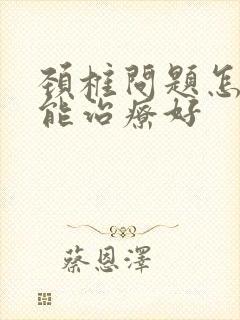 頚椎問題怎
能治療好
蔡恩澤